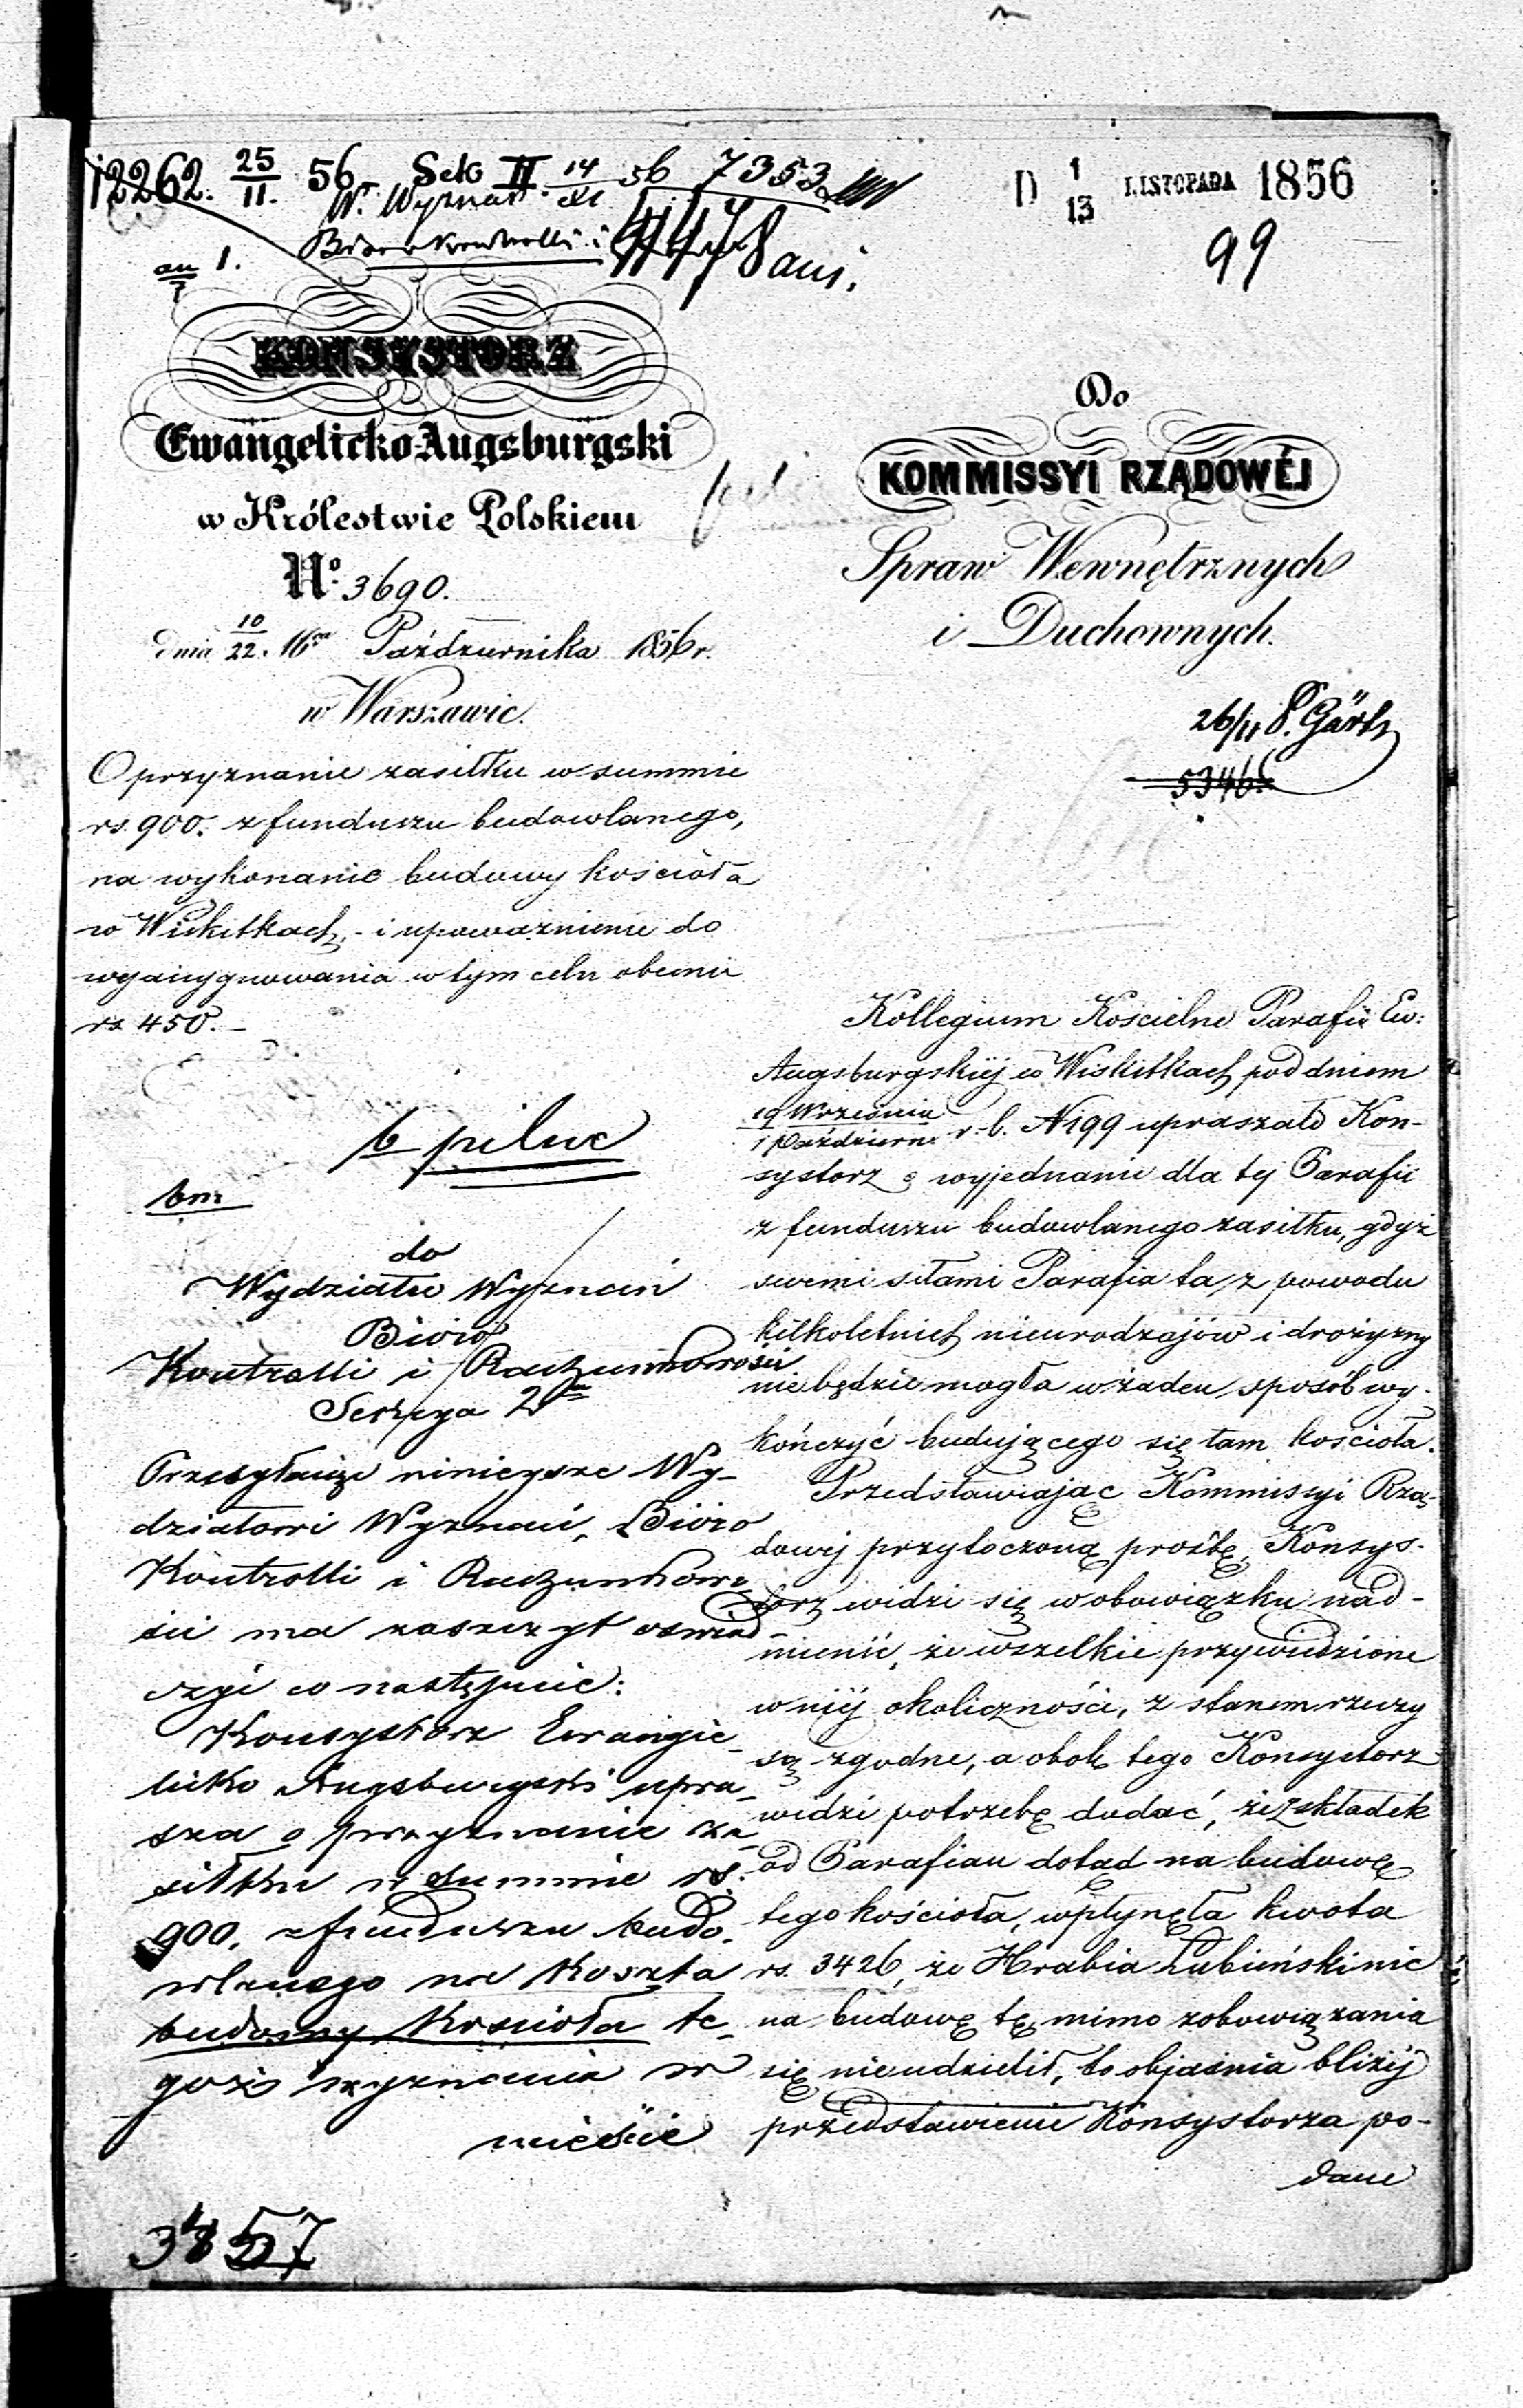 12262. 25/11. 56 Sek II 14/XI 56 7353
W. Wyznań
Bióro Kontrolli i
D 1/13 LISTOPADA 1856
99
an 1.
KONSYSTORZ
Ewangelicko Augsburgski
w Królestwie Polskiem
No. 3690.
dnia 10/22. Października 1856 r.
w Warszawie.
O przyznanie zasiłku w summie
rs. 900. z funduszu budowlanego,
na wykonanie budowy kościoła
w Wiskitkach, - i upoważnienie do
wyasygnowania w tym celu obecnie
rs 450. -
b pilne
do
Wydziału Wyznań
Bióro
Kontrolli i Rachunkowości
Sekcya 2
Przesyłając niniejsze Wy-
działowi Wyznań, Bióro
Kontrolli i Rachunkowo-
ści ma zaszczyt oświad-
czyć co następuje:
Konsystorz Ewangie-
licko Augsburgski upra-
sza o przyznanie za-
siłku w summie rs.
900. z funduszu budo-
wlanego na koszta
budowy Kościoła te-
goż wyznania w
mieście
3457
Do
KOMMISSYI RZĄDOWÉJ
Spraw Wewnętrznych
i Duchownych.
26/11 P. Gärtz
5346
Kollegium Kościelne Parafii Ew:
Augsburgskiéj w Wiskitkach pod dniem
19 Września/1 Październ. r. b. N 199 upraszało Kon-
systorz o wyjednanie dla tej Parafii
z funduszu budowlanego zasiłku, gdyż
swemi siłami Parafia ta, z powodu
kilkoletnich nieurodzajów i drożyzny
nie będzie mogła w żaden sposób wy-
kończyć budującego się tam kościoła.
Przedstawiając Kommissyi Rzą-
dowéj przytoczoną prośbę, Konsys-
torz widzi się w obowiązku nad-
mienić, że wszelkie przywiedzione
w niéj okoliczności, z stanem rzeczy
są zgodne, a obok tego Konsystorz
widzi potrzebę dodać, że z składek
od Parafian dotąd na budowę
tego kościoła, wpłynęła kwota
rs. 3426, że Hrabia Łubieński nic
na budowę tę, mimo zobowiązania
się nie udzielił, to objaśnia bliżéj
przedstawienie Konsystorza po-
dane